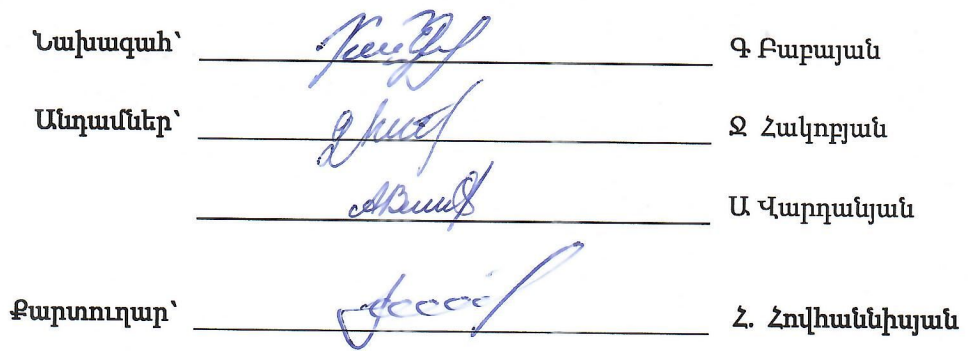 Նախագահ՝ Գ Բաբայան
Անդամներ՝ Ջ Հակոբյան
Ա Վարդանյան
Քարտուղար՝ Հ. Հովհաննիսյան